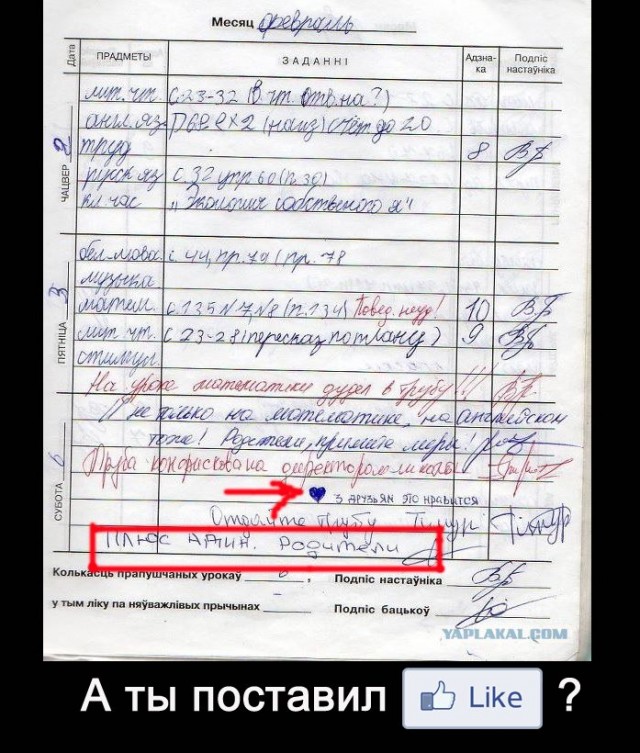 Месяц февраль
Дата ПРАДМЕТЫ ЗАДАННІ Адзнака Подпіс настаўніка
ЧАЦВЕР 2
лит. чт. с 23-32 (В. чт. отв. на ?)
англ. яз
труд 8
русск яз с. 32 упр 60 (п. 30)
кл час "Экология собственого я"
ПЯТНІЦА 3
бел. мова с. 44, пр. 79 (пр. 78
музыка
матем. с. 135 N 7, N 8 (п. 134) Повед. неуд! 10
лит. чт. с 23-28 (пересказ по плану) 9
стимул
На уроке математики дудел в трубу!!!
СУБОТА
И не только на математике, на английском
тоже! Родители, примите меры!
Труба конфискована директором школы
3 друзьям это нравится
Отдайте трубу Тимур
Плюс адин. Родители
Колькасць прапушчаных урокаў , Подпіс настаўніка
у тым ліку па няўважлівых прычынах – Подпіс бацькоў
YAPLAKAL.COM
А ты поставил Like ?